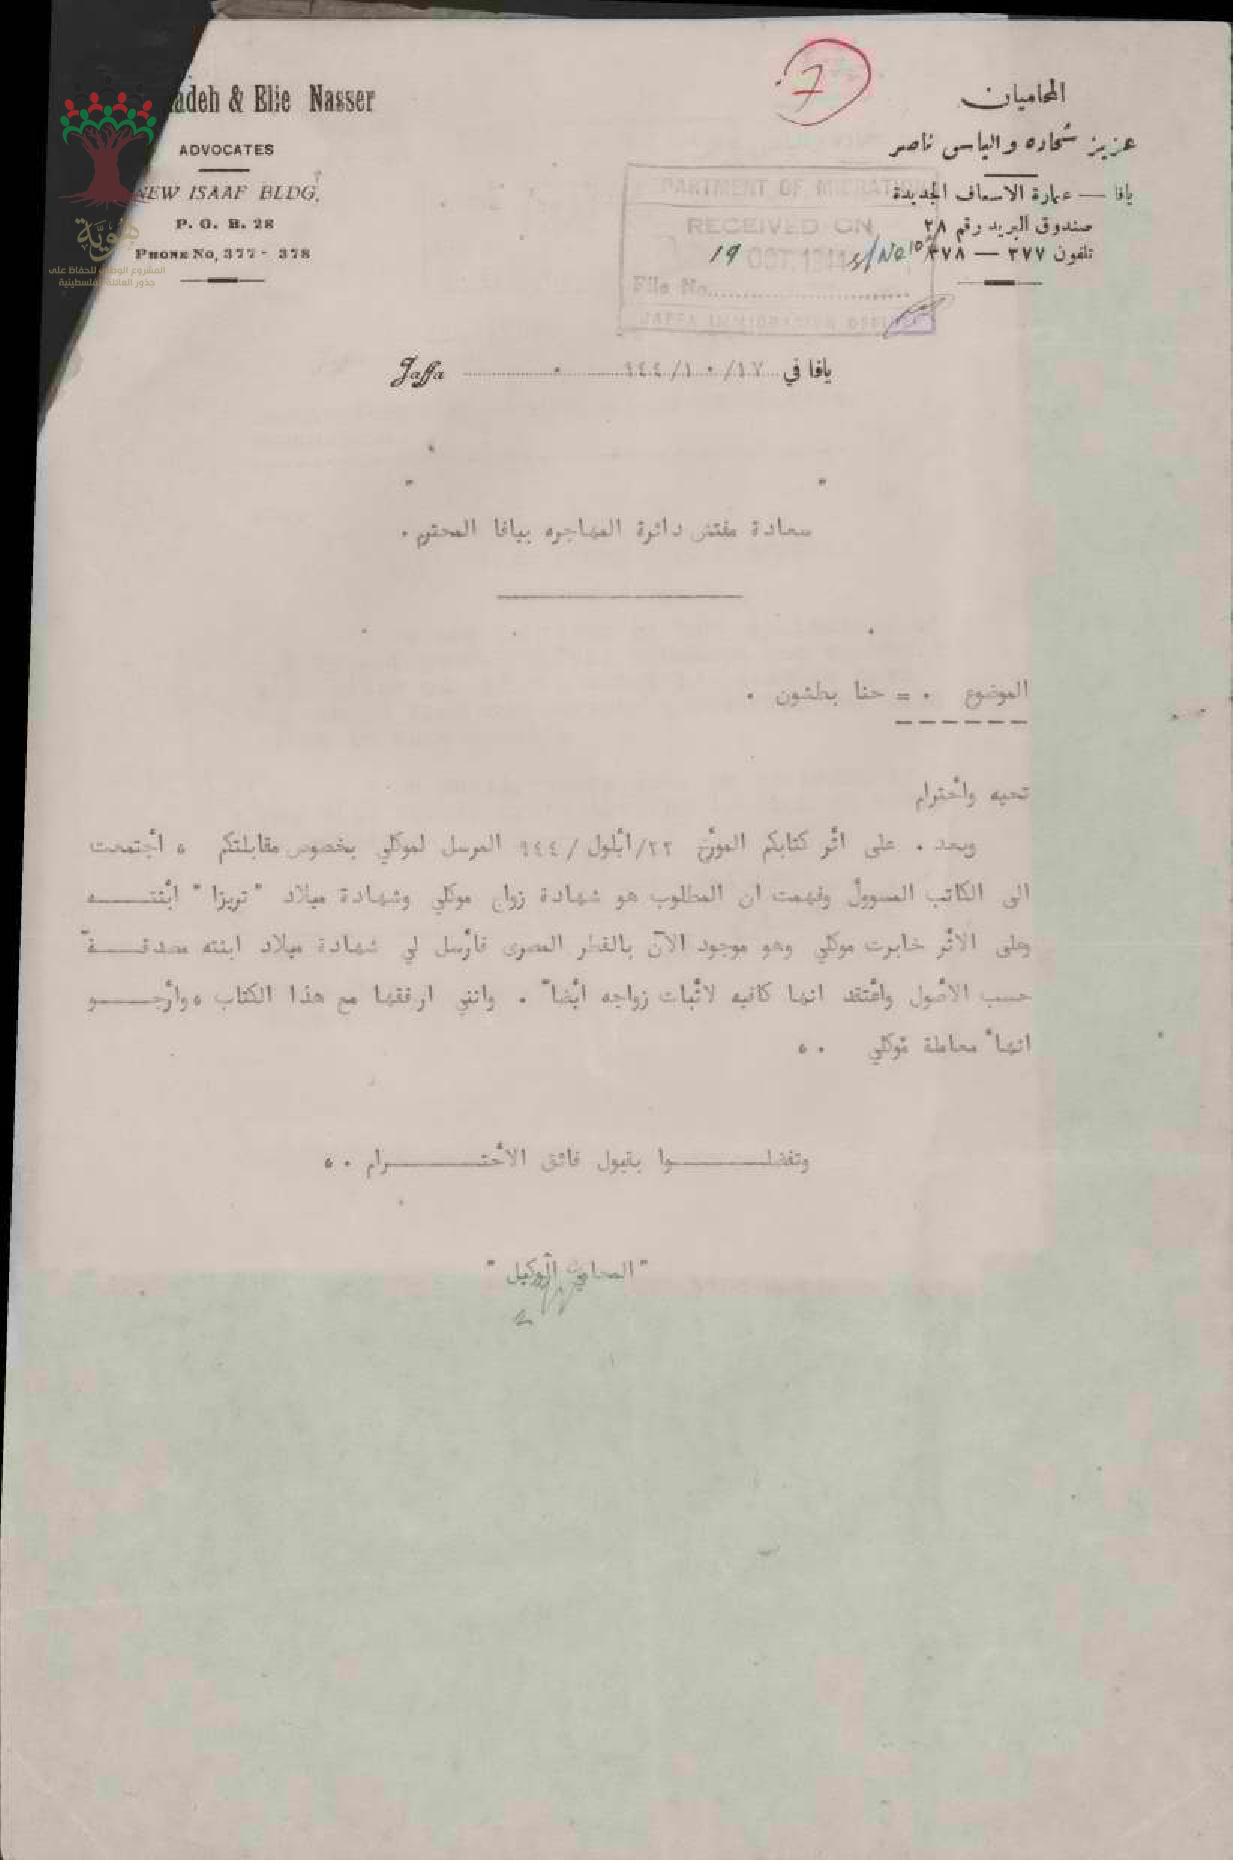 adeh & Elie Nasser
ADVOCATES
NEW ISAAF BLDG.
P. O. B. 28
PHONE No, 377 - 378
هوية
المشروع الوطني للحفاظ على
جذور العائلة الفلسطينية
7
المحاميان
عزيز شحاده والياس ناصر
يافا — عمارة الاسعاف الجديدة
صندوق البريد رقم ٢٨
تلفون ٣٧٧ — ٣٧٨
PARTMENT OF MIGRATION
RECEIVED ON
19 OCT. 1944
File No.
JAFFA IMMIGRATION OFFICE
Jaffa يافا في ١٧/١٠/٩٤٤
سعادة مفتش دائرة المهاجره بيافا المحترم .
الموضوع . = حنا بطشون .
تحيه وأحترام
وبعد . على اثر كتابكم المورخ ٢٢/أيلول/٩٤٤ المرسل لموكلي بخصوص مقابلتكم ، أجتمعت
الى الكاتب المسوول وفهمت ان المطلوب هو شهادة زواج موكلي وشهادة ميلاد "تريزا" ابنتـــه
وعلى الاثر خابرت موكلي وهو موجود الآن بالقطر المصرى فأرسل لي شهادة ميلاد ابنته مصدقـــة
حسب الاصول واعتقد انها كافيه لاثبات زواجه أيضاً . وانني ارفقها مع هذا الكتاب ، وارجـــو
انهاء معاملة موكلي . ،
وتفضلـــوا بقبول فائق الاحتـــرام . ،
"المحامي الوكيل"